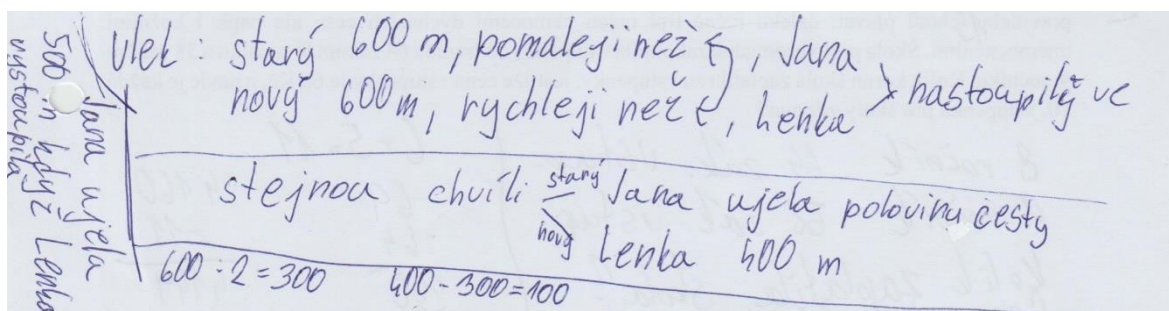 Vlek: starý 600 m, pomaleji než ↰, Jana
nový 600 m, rychleji než ↰, Lenka > nastoupilý ve
stejnou chvíli starý Jana ujela polovinu cesty
nový Lenka 400 m
600 - 2 = 300 400 - 300 = 100
Jana ujela
500 m když Lenka
vystoupila